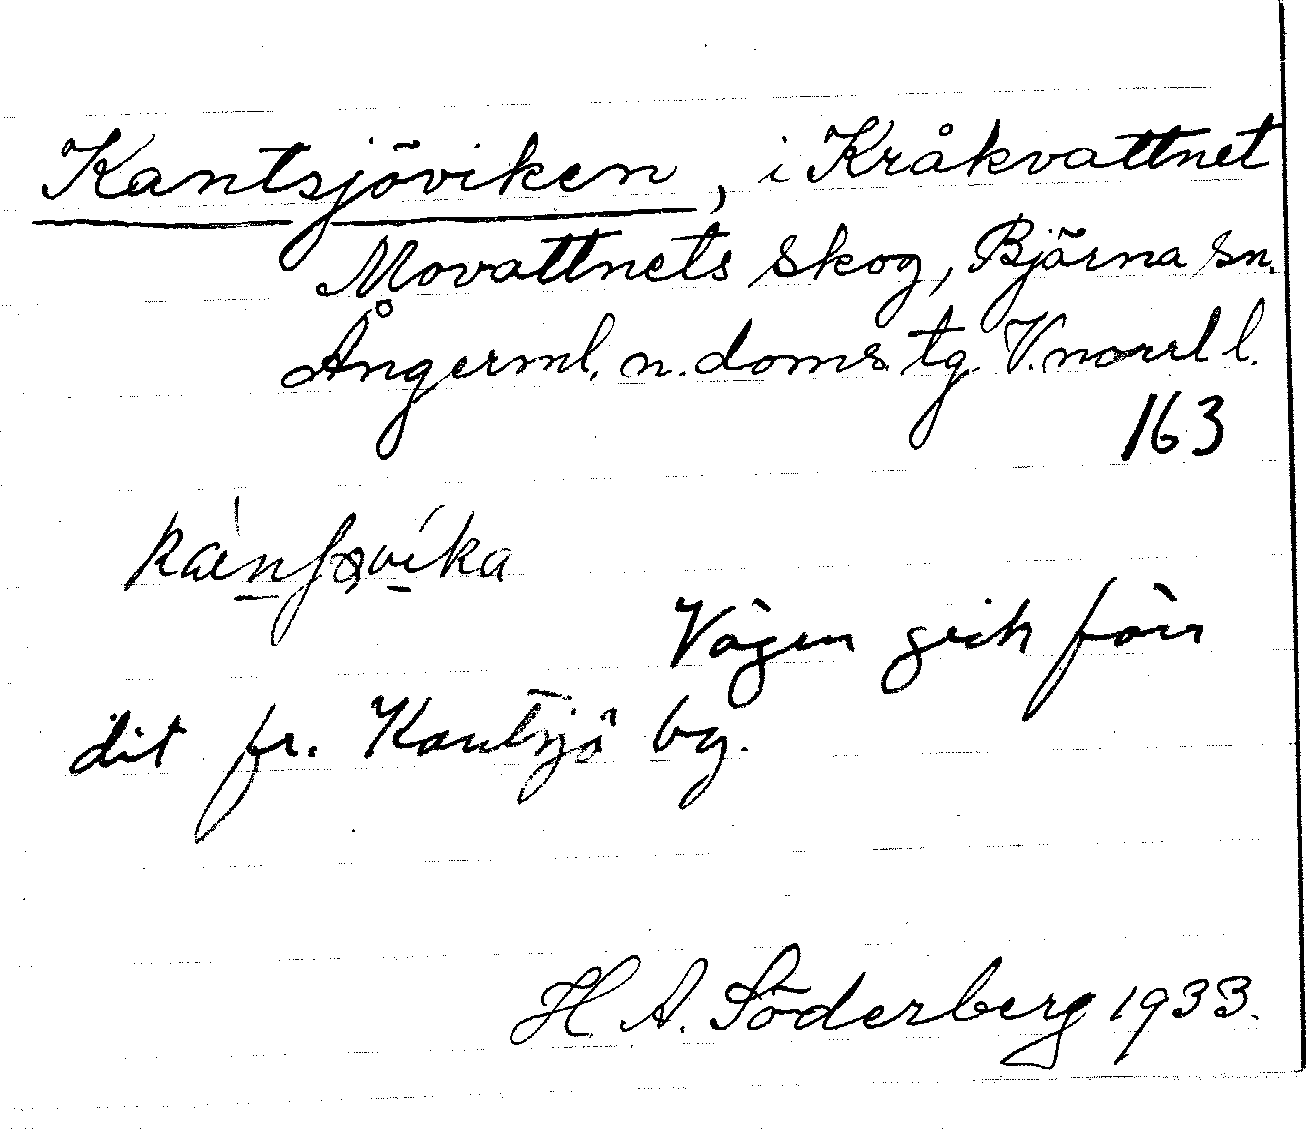 Kantsjöviken, i Kråkvattnet
Movattnets skog, Bjärna sn.
Ångerml. n. doms. tg. V.norrl l.
163
Vägen gick förr
dit fr. Kantsjö by.
H A. Söderberg 1933.